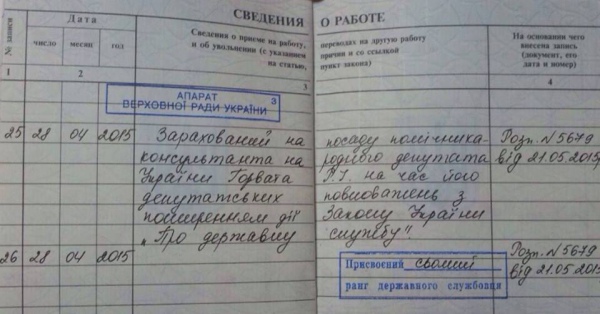 СВЕДЕНИЯ О РАБОТЕ
№ записи
Дата
число месяц год
Сведения о приеме на работу,
и об увольнении (с указанием
на статью,
переводах на другую работу
причин и со ссылкой
пункт закона)
На основании чего
внесена запись
(документ, его
дата и номер)
1 2 3 4
АПАРАТ 3
ВЕРХОВНОЇ РАДИ УКРАЇНИ
25 28 04 2015 Зарахований на посаду помічника- Розп. N 5679
консультанта на родного депутата від 21.05 2015
України Горвата Р.І. на час його
депутатських повноважень з
поширенням дії Закону України
"Про державну службу".
26 28 04 2015 Присвоєний сьомий Розп. N 5679
ранг державного службовця від 21.05 2015